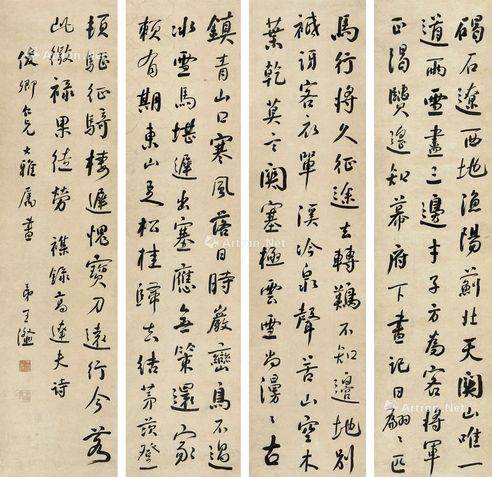 碣石遼西地漁陽薊北天關山唯一
道雨雪盡三邊才子方為客將軍
正渴賢遙知幕府下書記日翩〻匹
馬行將久征途去轉難不知邊地別
祗訝客衣單溪冷泉聲苦山空木
葉乾莫言關塞極雲雪尚漫〻古
鎮青山口寒風落日時巖巒鳥不過
冰雪馬堪遲出塞應無策還家
賴有期東山足松桂歸去結茅茨登
頓驅征騎棲遲愧寶刀遠行今若
此微祿果徒勞襍錄高達夫詩
俊卿仁兄大雅屬書
弟